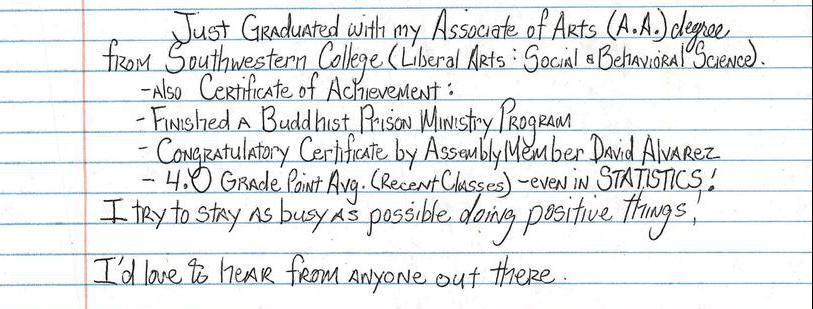 Just Graduated with my Associate of Arts (A.A.) degree
from Southwestern College (Liberal Arts : Social & Behavioral Science).
-Also Certificate of Achievement :
- Finished a Buddhist Prison Ministry Program
- Congratulatory Certificate by Assembly Member David Alvarez
- 4.0 Grade Point Avg. (Recent Classes) -even in STATISTICS!
I try to stay as busy as possible doing positive things!
I'd love to hear from anyone out there.